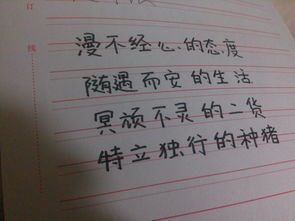 订
线
漫不经心的态度
随遇而安的生活
冥顽不灵的二货
特立独行的种猪